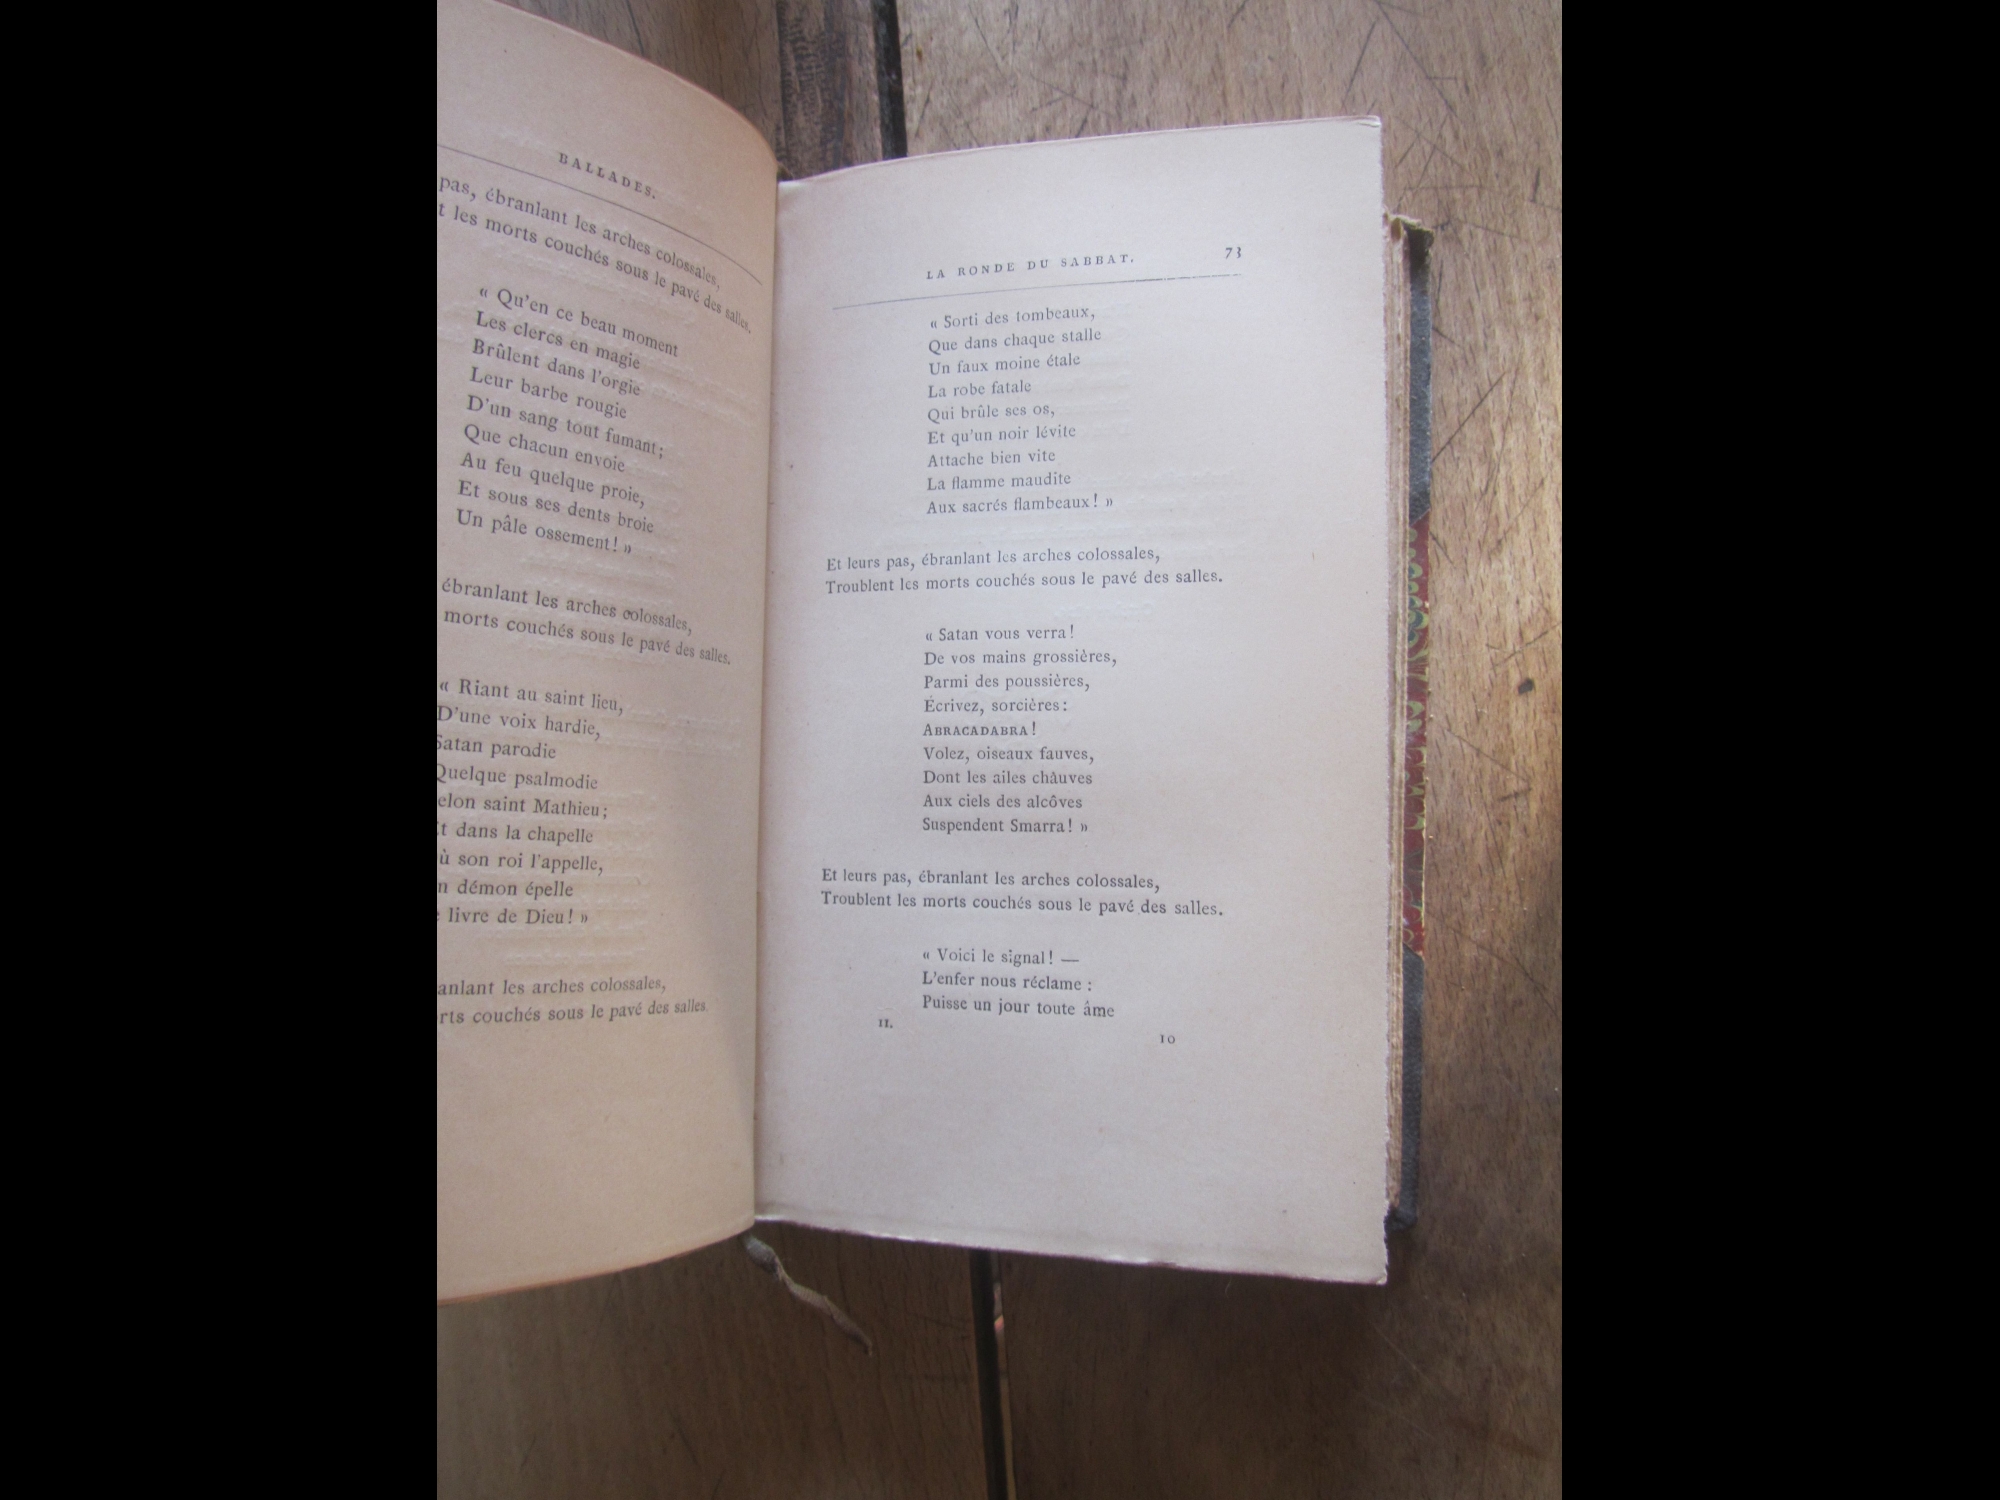 BALLADES.
pas, ébranlant les arches colossales,
t les morts couchés sous le pavé des salles.
« Qu'en ce beau moment
Les clercs en magie
Brûlent dans l'orgie
Leur barbe rougie
D'un sang tout fumant;
Que chacun envoie
Au feu quelque proie,
Et sous ses dents broie
Un pâle ossement! »
ébranlant les arches colossales,
morts couchés sous le pavé des salles.
« Riant au saint lieu,
D'une voix hardie,
Satan parodie
Quelque psalmodie
elon saint Mathieu;
t dans la chapelle
ù son roi l'appelle,
n démon épelle
livre de Dieu! »
anlant les arches colossales,
rts couchés sous le pavé des salles.
LA RONDE DU SABBAT. 73
« Sorti des tombeaux,
Que dans chaque stalle
Un faux moine étale
La robe fatale
Qui brûle ses os,
Et qu'un noir lévite
Attache bien vite
La flamme maudite
Aux sacrés flambeaux! »
Et leurs pas, ébranlant les arches colossales,
Troublent les morts couchés sous le pavé des salles.
« Satan vous verra!
De vos mains grossières,
Parmi des poussières,
Écrivez, sorcières:
ABRACADABRA!
Volez, oiseaux fauves,
Dont les ailes chauves
Aux ciels des alcôves
Suspendent Smarra! »
Et leurs pas, ébranlant les arches colossales,
Troublent les morts couchés sous le pavé des salles.
« Voici le signal! —
L'enfer nous réclame:
Puisse un jour toute âme
II. 10